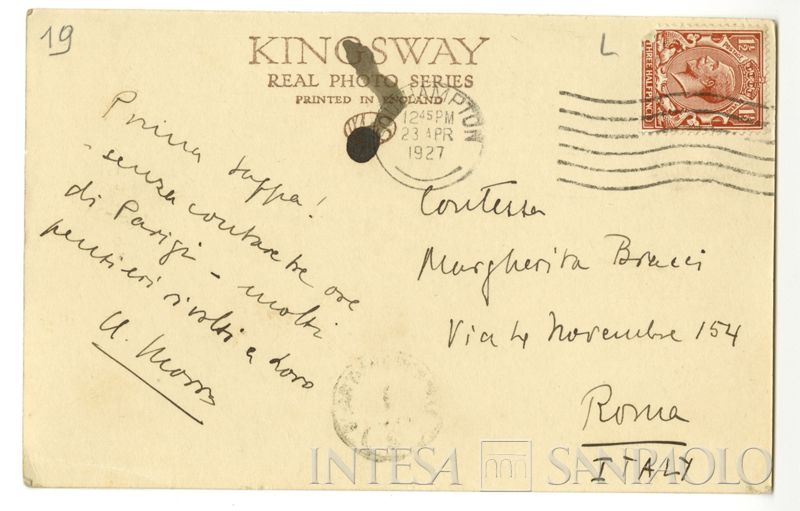 19
L
KINGSWAY
REAL PHOTO SERIES
PRINTED IN ENGLAND
1½ POSTAGE 1½
THREE HALFPENCE
AMPTON
12 45 PM
23 APR
1927
Prima tappa!
- senza contare tre ore
di Parigi - molti
pensieri rivolti a Loro
U. Morra
Contessa
Margherita Bracci
Via 4 Novembre 154
Roma
ITALY
INTESA SANPAOLO